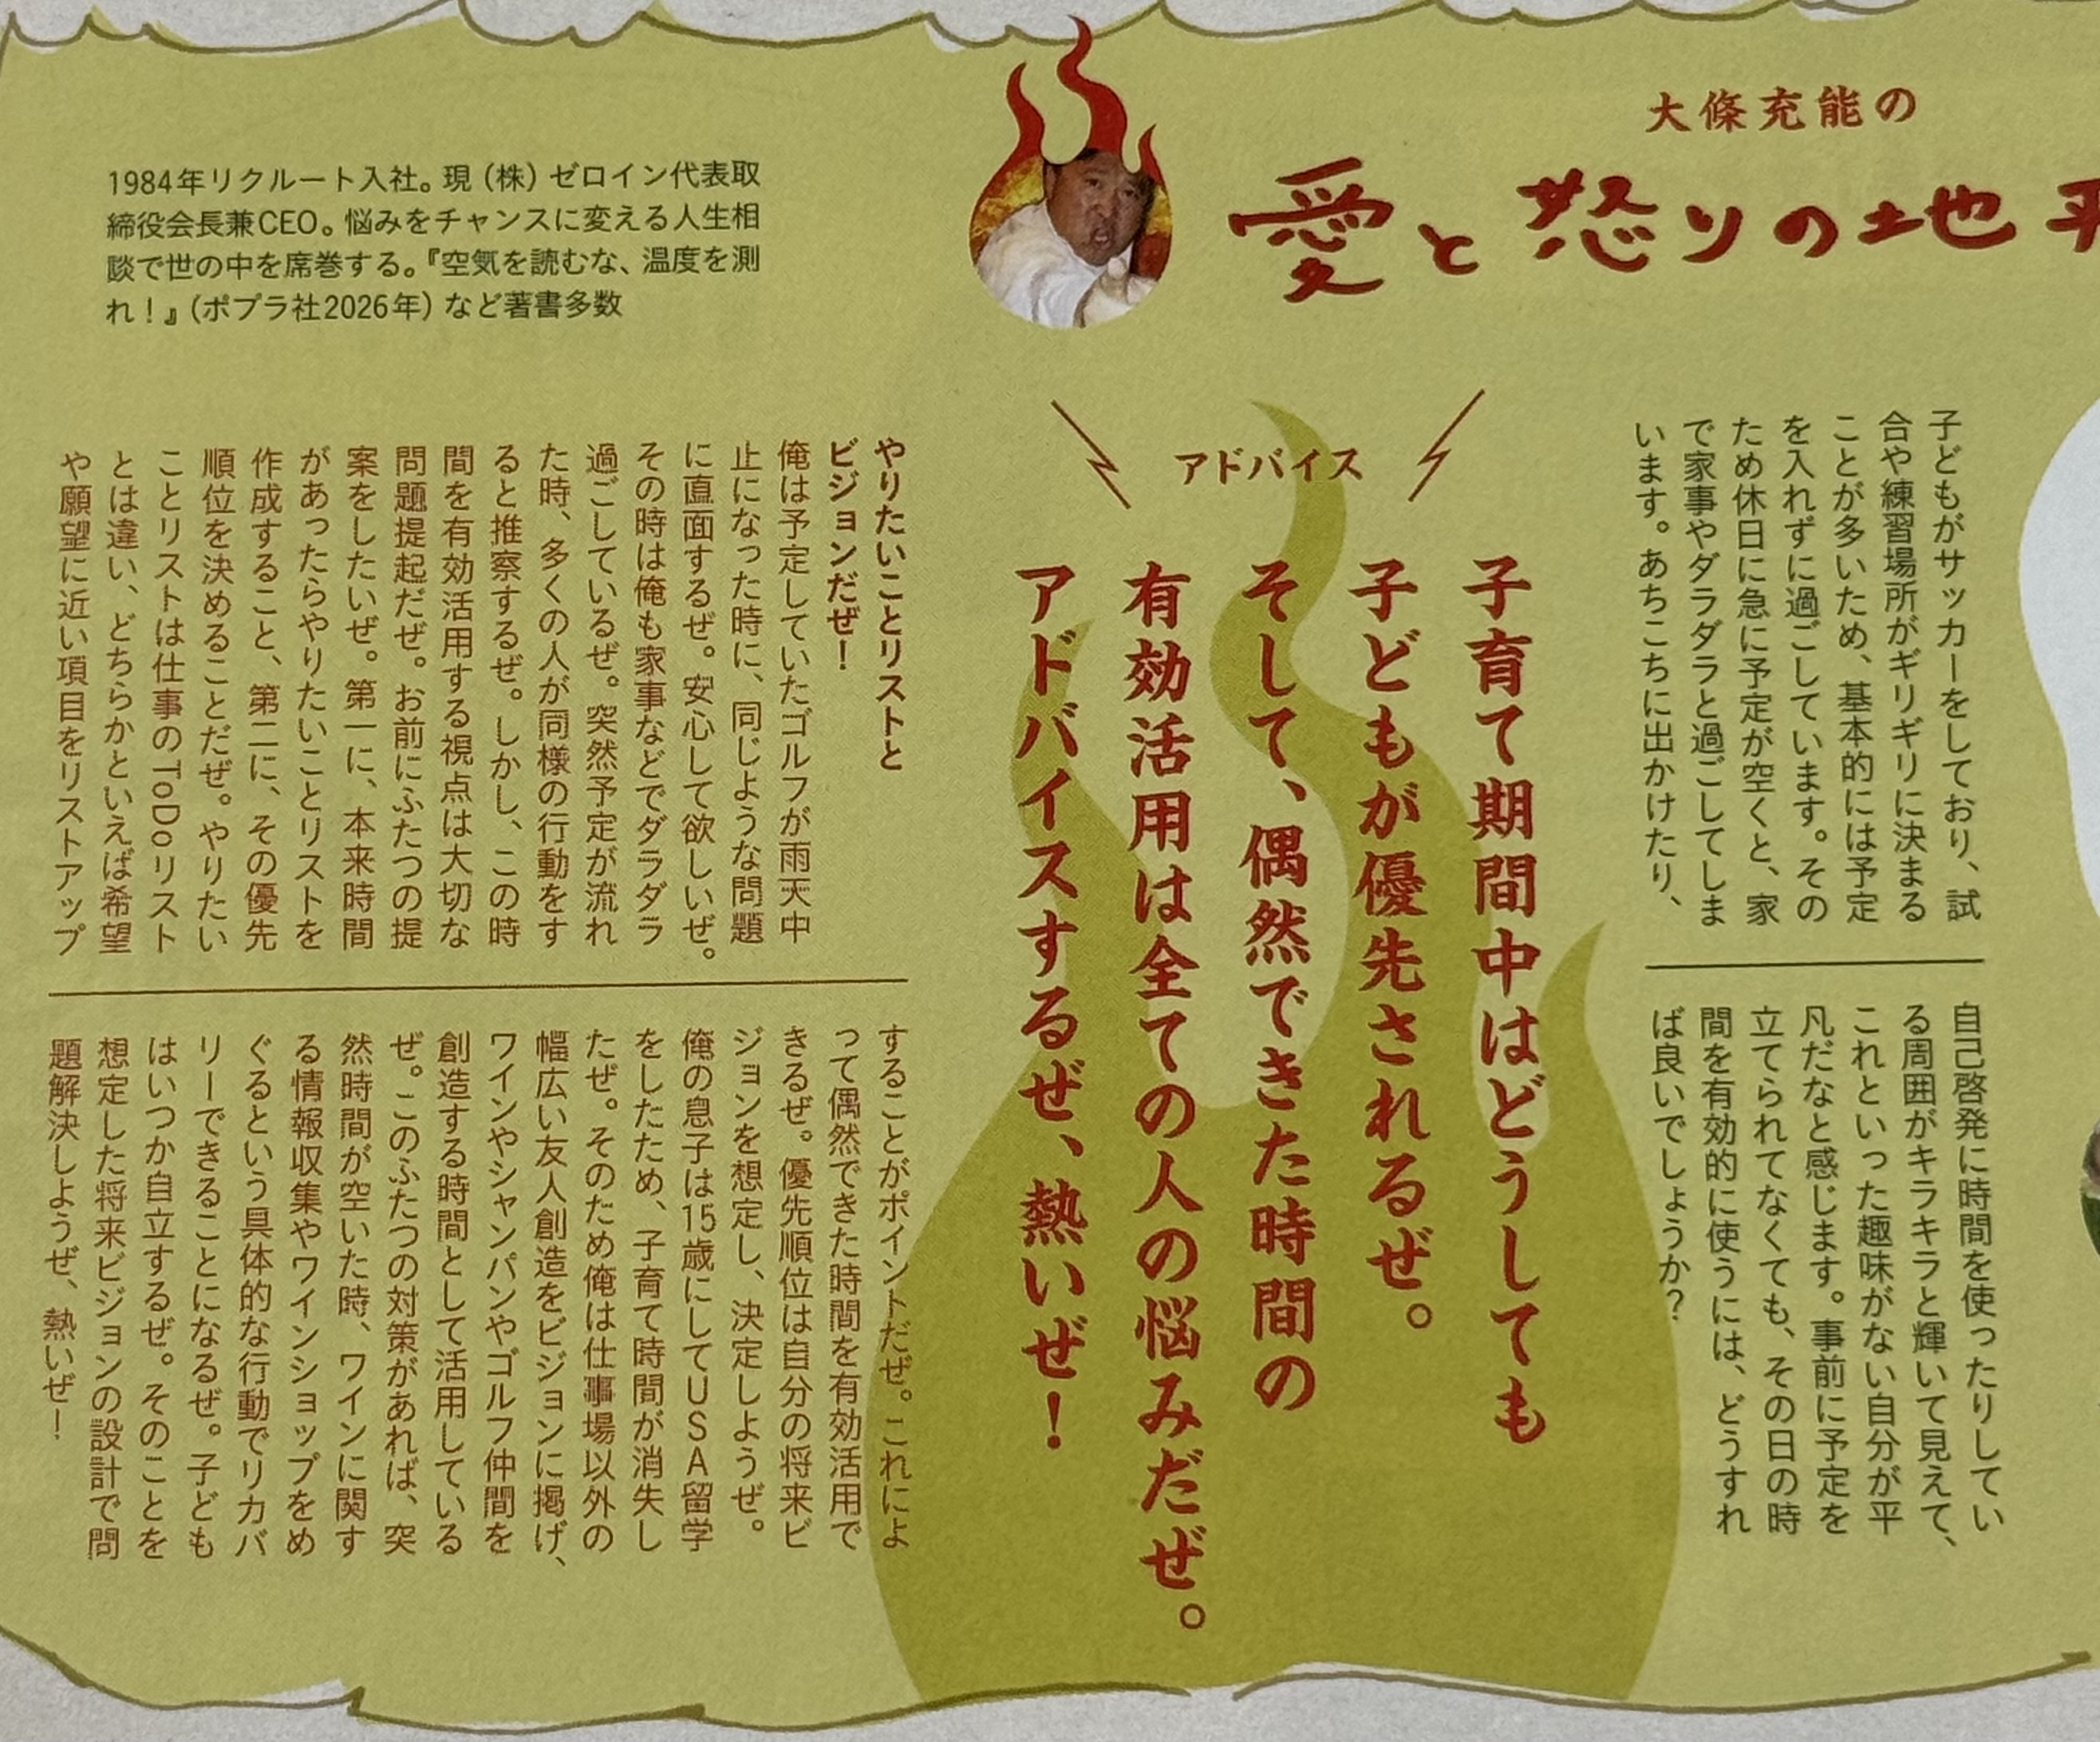 大條充能の
愛と怒りの地平
1984年リクルート入社。現（株）ゼロイン代表取
締役会長兼CEO。悩みをチャンスに変える人生相
談で世の中を席巻する。『空気を読むな、温度を測
れ！』（ポプラ社2026年）など著書多数
子どもがサッカーをしており、試
合や練習場所がギリギリに決まる
ことが多いため、基本的には予定
を入れずに過ごしています。その
ため休日に急に予定が空くと、家
で家事やダラダラと過ごしてしま
います。あちこちに出かけたり、
自己啓発に時間を使ったりしてい
る周囲がキラキラと輝いて見えて、
これといった趣味がない自分が平
凡だなと感じます。事前に予定を
立てられてなくても、その日の時
間を有効的に使うには、どうすれ
ば良いでしょうか？
アドバイス
子育て期間中はどうしても
子どもが優先されるぜ。
そして、偶然できた時間の
有効活用は全ての人の悩みだぜ。
アドバイスするぜ、熱いぜ！
やりたいことリストと
ビジョンだぜ！
俺は予定していたゴルフが雨天中
止になった時に、同じような問題
に直面するぜ。安心して欲しいぜ。
その時は俺も家事などでダラダラ
過ごしているぜ。突然予定が流れ
た時、多くの人が同様の行動をす
ると推察するぜ。しかし、この時
間を有効活用する視点は大切な
問題提起だぜ。お前にふたつの提
案をしたいぜ。第一に、本来時間
があったらやりたいことリストを
作成すること、第二に、その優先
順位を決めることだぜ。やりたい
ことリストは仕事のToDoリスト
とは違い、どちらかといえば希望
や願望に近い項目をリストアップ
することがポイントだぜ。これによ
って偶然できた時間を有効活用で
きるぜ。優先順位は自分の将来ビ
ジョンを想定し、決定しようぜ。
俺の息子は15歳にしてUSA留学
をしたため、子育て時間が消失し
たぜ。そのため俺は仕事場以外の
幅広い友人創造をビジョンに掲げ、
ワインやシャンパンやゴルフ仲間を
創造する時間として活用している
ぜ。このふたつの対策があれば、突
然時間が空いた時、ワインに関す
る情報収集やワインショップをめ
ぐるという具体的な行動でリカバ
リーできることになるぜ。子ども
はいつか自立するぜ。そのことを
想定した将来ビジョンの設計で問
題解決しようぜ、熱いぜ！